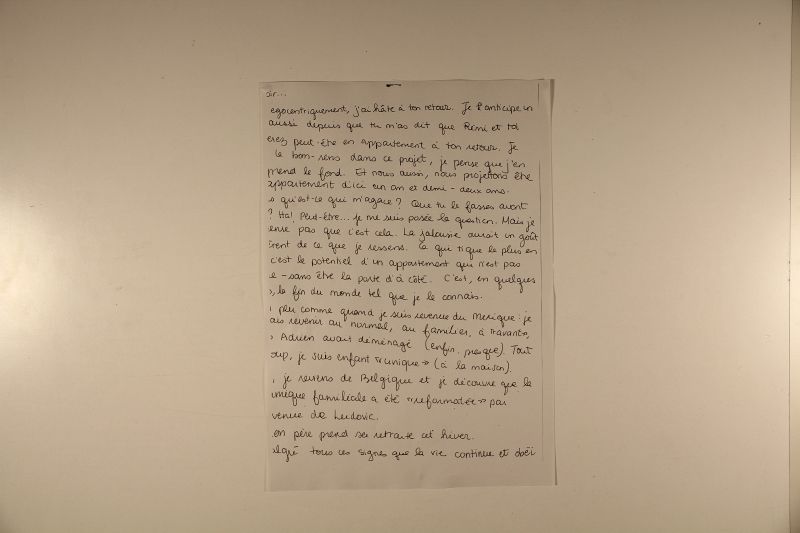 oir...
egocentriquement, j'ai hâte à ton retour. Je l'anticipe un
aussi depuis que tu m'as dit que Rémi et toi
erez peut-être en appartement à ton retour. Je
le bon-sens dans ce projet, je pense que j'en
prend le fond. Et nous aussi, nous projetons être
appartement d'ici un an et demi - deux ans.
qu'est-ce qui m'agace? Que tu le fasses avant
? Ha! Peut-être... je me suis posée la question. Mais je
ense pas que c'est cela. La jalousie aurait un goût
érent de ce que je ressens. Ce qui tique le plus en
c'est le potentiel d'un appartement qui n'est pas
e - sans être la porte d'à côté. C'est, en quelques
s, la fin du monde tel que je le connais.
peu comme quand je suis revenue du Mexique : je
ais revenir au normal, au familier, à
Adrien avait déménagé (enfin, presque). Tout
oup, je suis enfant «unique» (à la maison).
, je reviens de Belgique et je découvre que la
amique familiale a été «reformatée» par
venue de Ludovic.
on père prend sa retraite cet hiver.
algré tous ces signes que la vie continue et